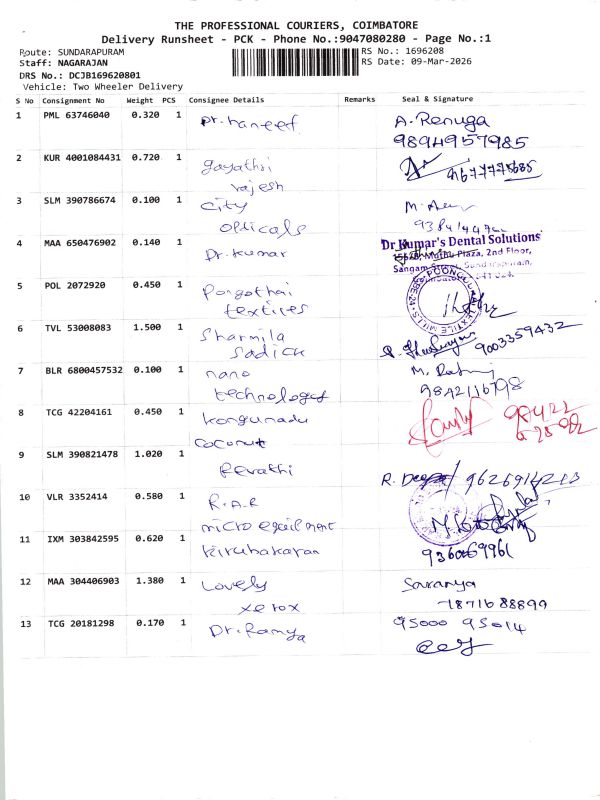 THE PROFESSIONAL COURIERS, COIMBATORE
Delivery Runsheet - PCK - Phone No.:9047080280 - Page No.:1
Route: SUNDARAPURAM
RS No.: 1696208
Staff: NAGARAJAN
RS Date: 09-Mar-2026
DRS No.: DCJB169620801
Vehicle: Two Wheeler Delivery
S No Consignment No Weight PCS Consignee Details Remarks Seal & Signature
1 PML 63746040 0.320 1 Dr. haneef A. Renuga
9894957985
2 KUR 4001084431 0.720 1 gayathri
rajesh
3 SLM 390786674 0.100 1 city
opticals
4 MAA 650476902 0.140 1 Dr. kumar Dr Kumar's Dental Solutions
Plaza, 2nd Floor,
5 POL 2072920 0.450 1 Pongothai
textiles
6 TVL 53008083 1.500 1 Sharmila
Sadick
9003359432
7 BLR 6800457532 0.100 1 nano
technology
8 TCG 42204161 0.450 1 kongunadu
coconut
9 SLM 390821478 1.020 1 Revathi
10 VLR 3352414 0.580 1 R.A.R
11 IXM 303842595 0.620 1 kirubakaran
12 MAA 304406903 1.380 1 Lovely
xerox
Saranya
13 TCG 20181298 0.170 1 Dr. Ramya 95000 95014